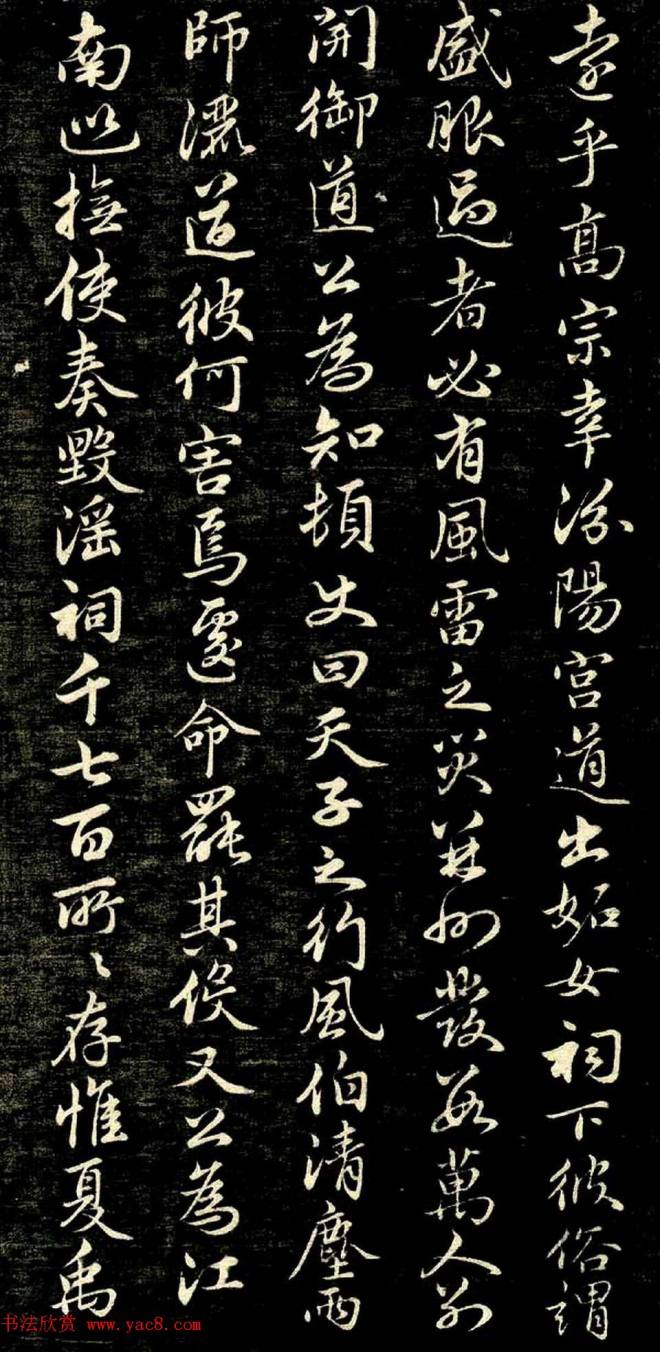 遠乎高宗幸汾陽宮道出妬女祠下彼俗謂
盛服過者必有風雷之災并州發數萬人別
開御道公為知頓使曰天子之行風伯清塵雨
師灑道彼何害焉遽命罷其役又公為江
南巡撫使奏毀淫祠千七百所〻存惟夏禹
书法欣赏 www.yac8.com